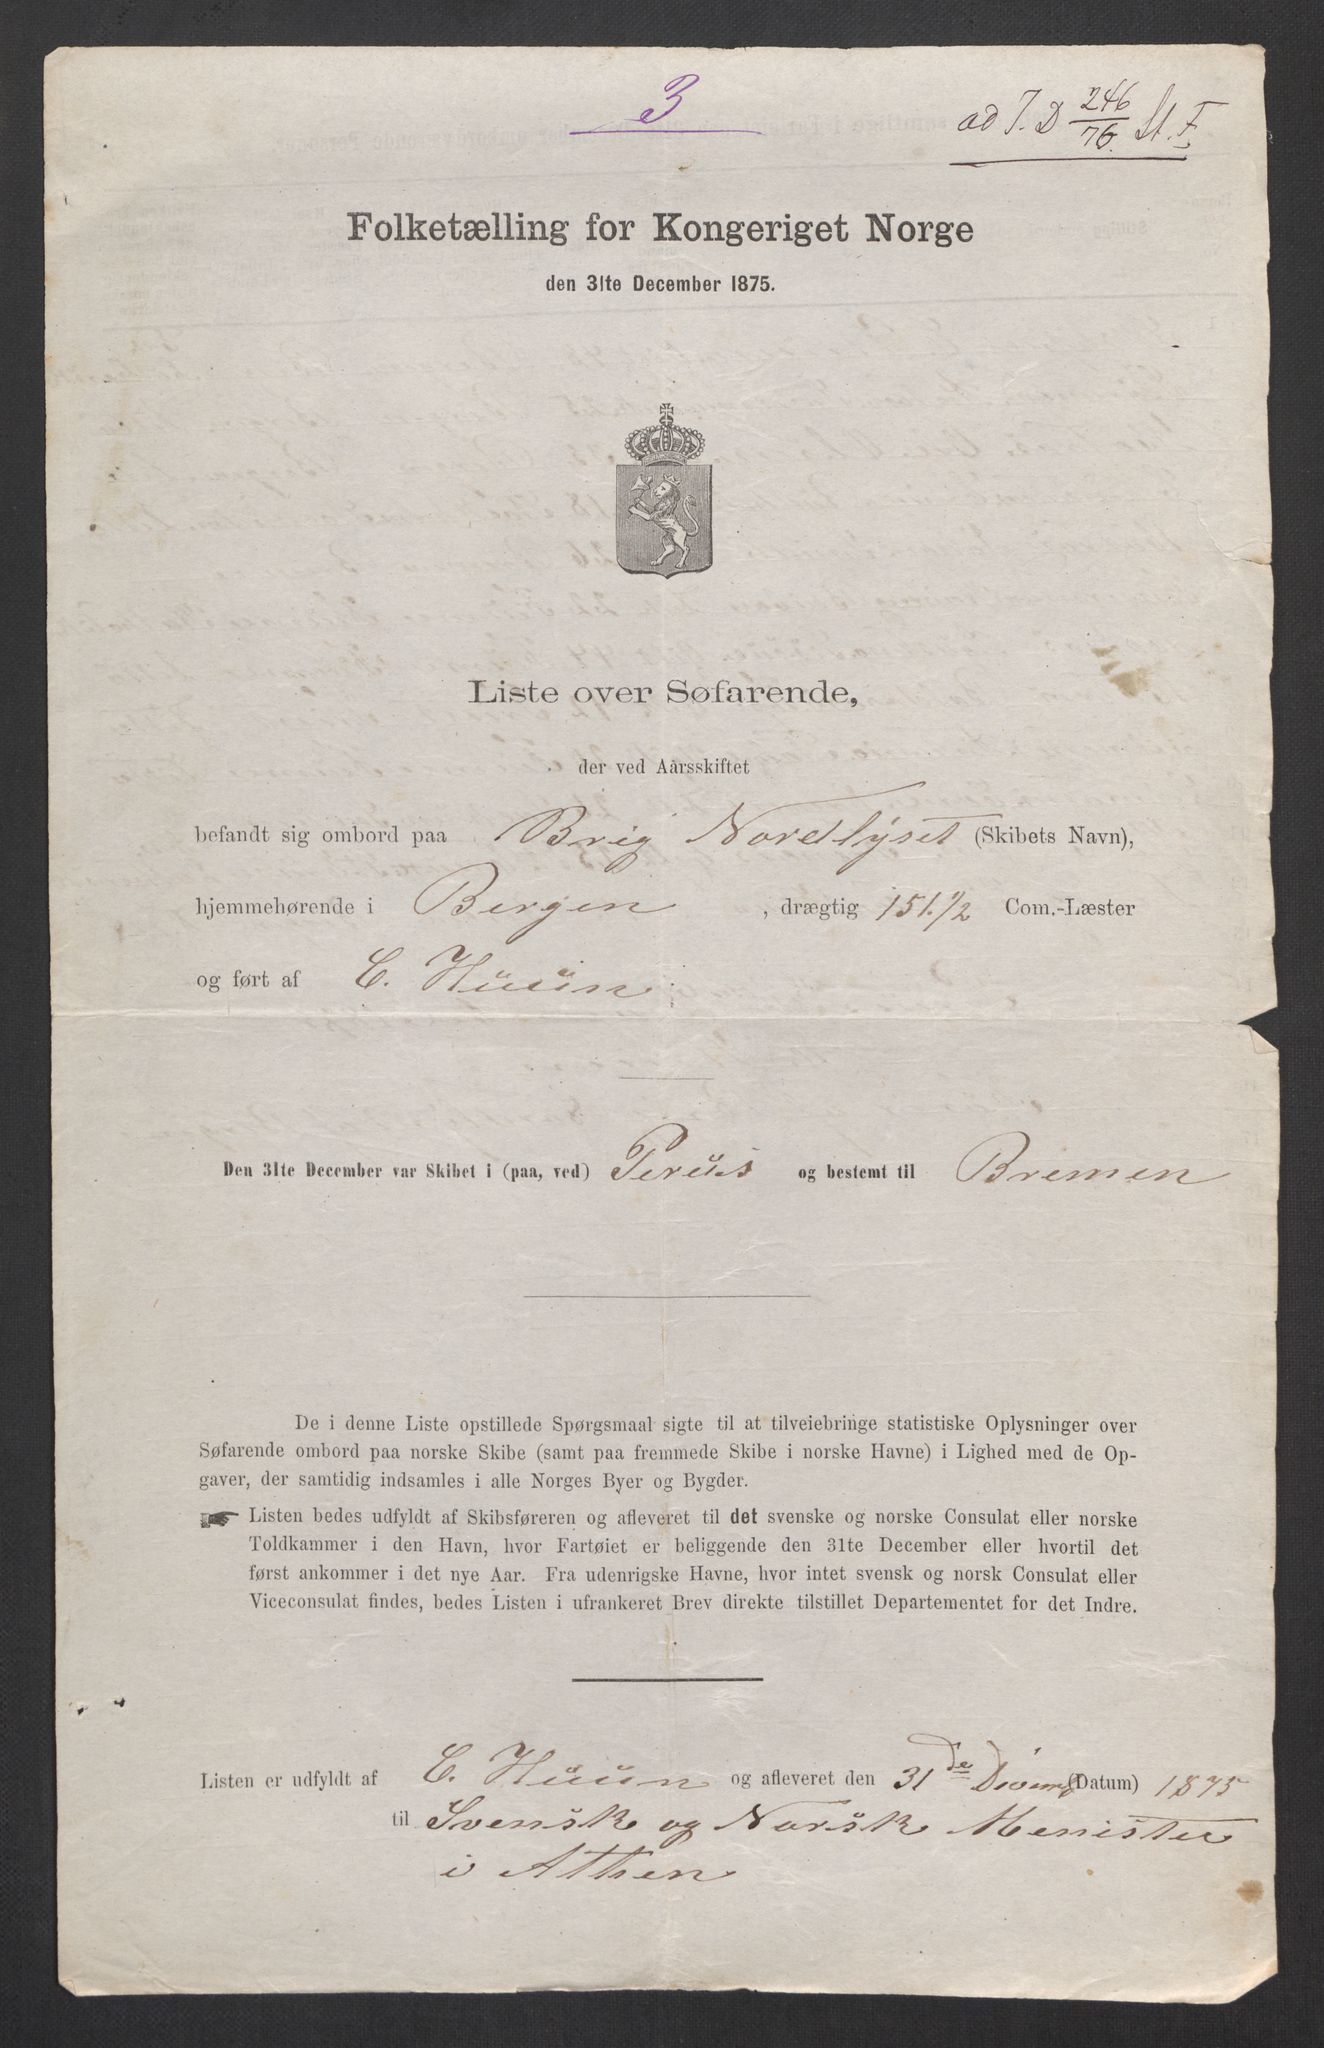 3
ad J. D 246/76. St. F.
Folketælling for Kongeriget Norge
den 31te December 1875.
Liste over Søfarende,
der ved Aarsskiftet
befandt sig ombord paa Brig Nordlyset (Skibets Navn),
hjemmehørende i Bergen, drægtig 151.1/2 Com.-Læster
og ført af C. Huun
Den 31te December var Skibet i (paa, ved) Pereüs og bestemt til Bremen
De i denne Liste opstillede Spørgsmaal sigte til at tilveiebringe statistiske Oplysninger over
Søfarende ombord paa norske Skibe (samt paa fremmede Skibe i norske Havne) i Lighed med de Op-
gaver, der samtidig indsamles i alle Norges Byer og Bygder.
Listen bedes udfyldt af Skibsføreren og afleveret til det svenske og norske Consulat eller norske
Toldkammer i den Havn, hvor Fartøiet er beliggende den 31te December eller hvortil det
først ankommer i det nye Aar. Fra udenrigske Havne, hvor intet svensk og norsk Consulat eller
Viceconsulat findes, bedes Listen i ufrankeret Brev direkte tilstillet Departementet for det Indre.
Listen er udfyldt af C. Huun og afleveret den 31 de (Datum) 1875
til Svensk og Norsk Menister
i Athen